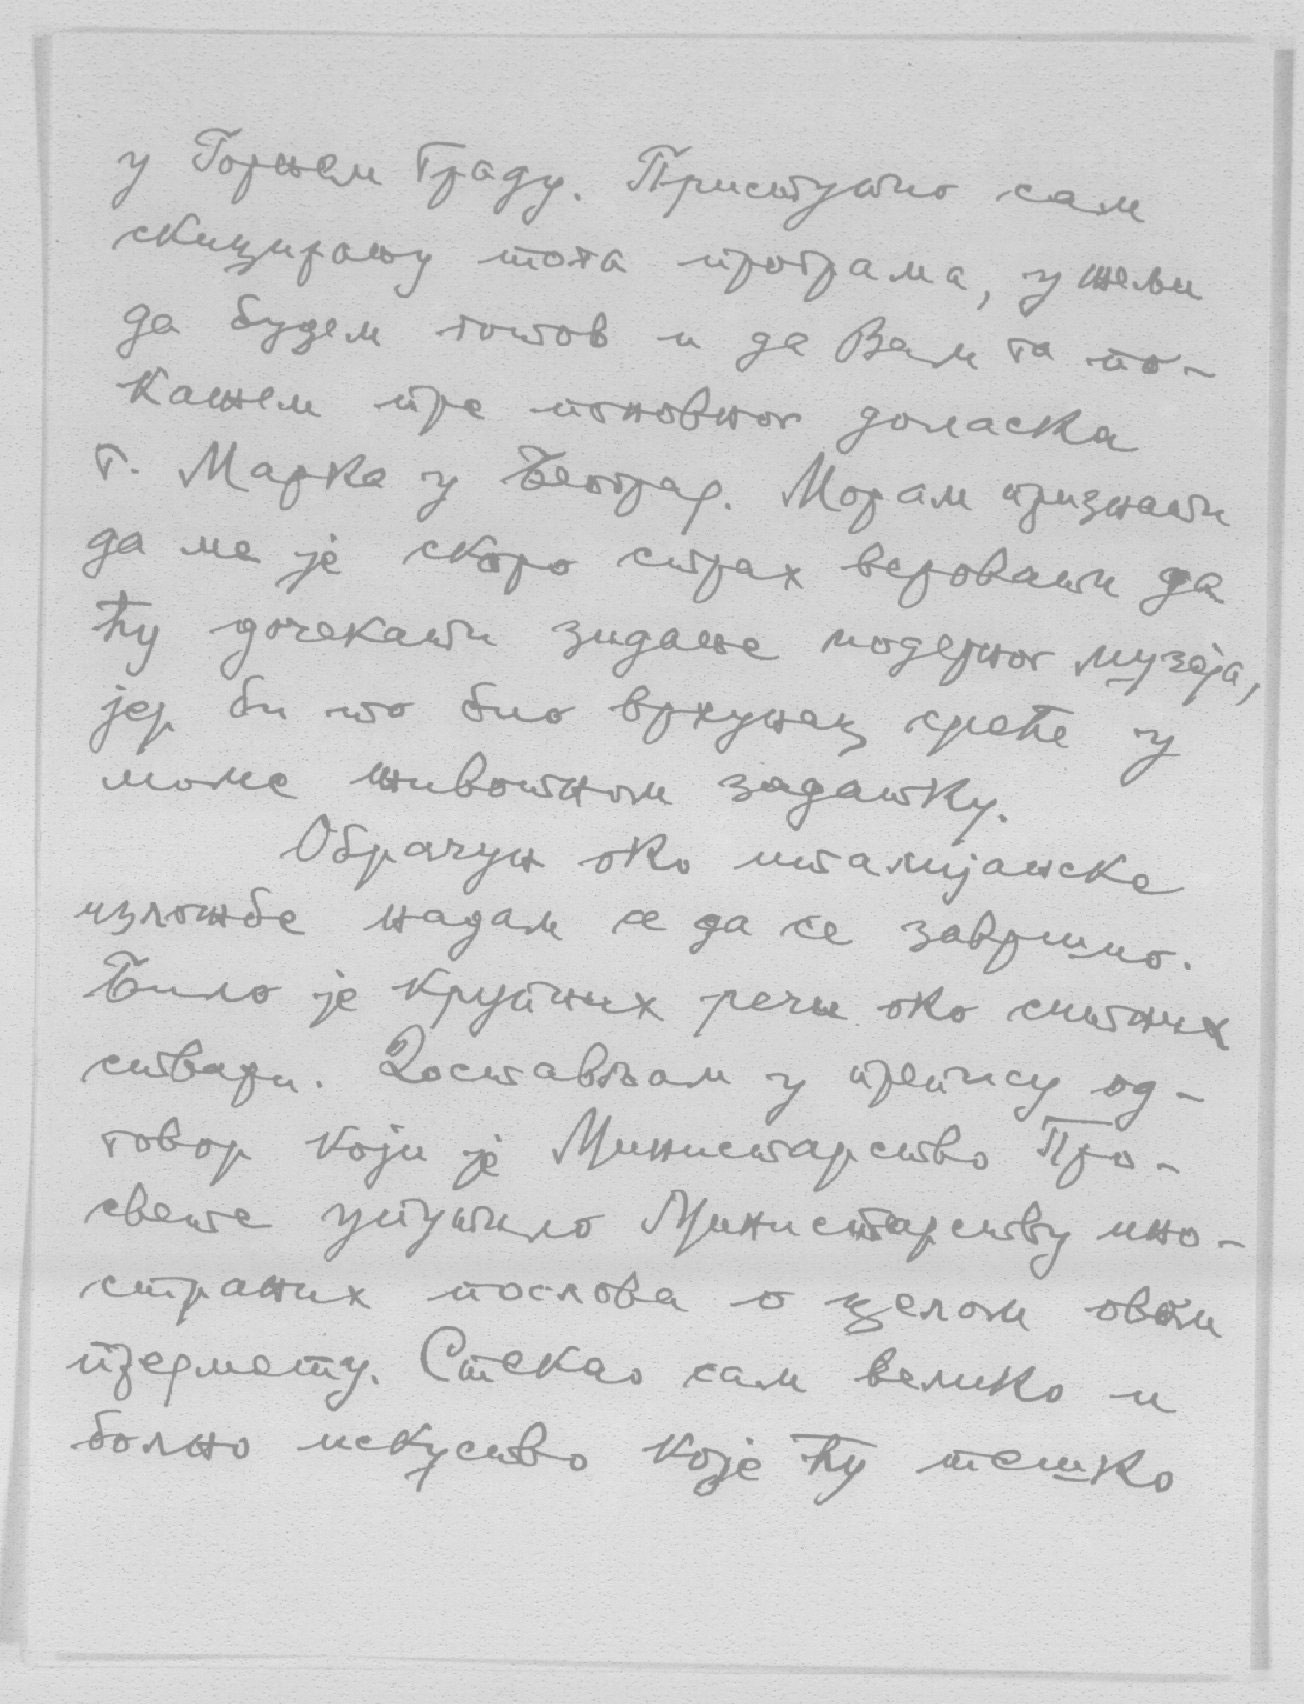 у Горњем Граду. Приступио сам
скицирању тога програма, у жељи
да будем готов и да Вам га по-
кажем пре поновног доласка
г. Марка у Београд. Морам признати
да ме је скоро страх веровати да
ћу дочекати зидање модерног музеја,
јер би то био врхунац среће у
моме животном задатку.
Обрачун око италијанске
изложбе надам се да се завршио.
Било је крупних речи око ситних
ствари. Достављам у препису од-
говор који је Министарство Про-
свете упутило Министарству ино-
страних послова о целом овом
предмету. Стекао сам велико и
болно искуство које ћу тешко